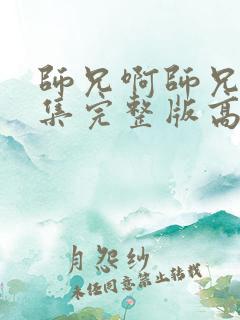 師兄啊師兄
集完整版高
月怨紗
未经同意禁止转载